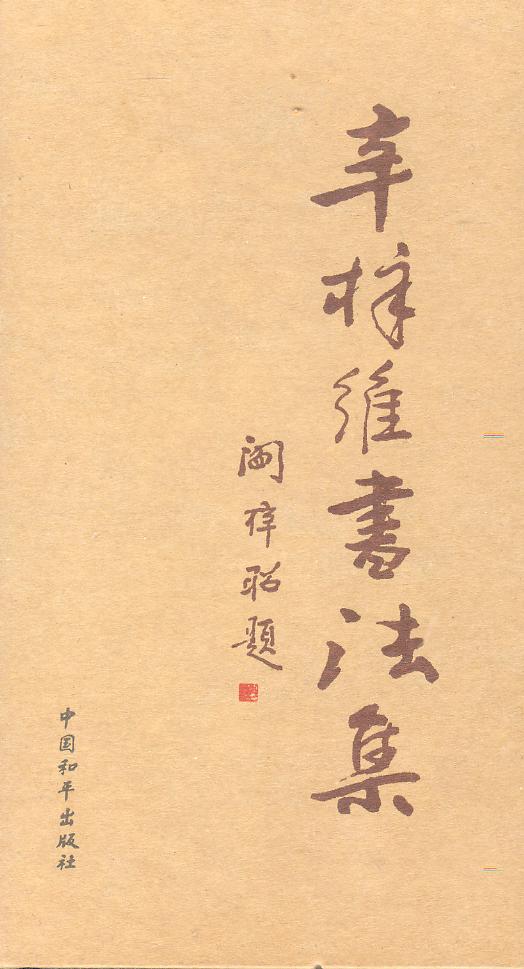 辛梓維書法集
題
中国和平出版社